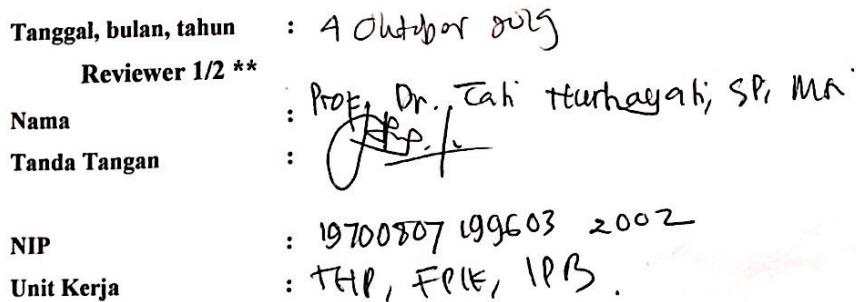 Tanggal, bulan, tahun : 4 Oktober
Reviewer 1/2 **
Nama : Prof. Dr. Tati Nurhayati, SPi, MSi
Tanda Tangan :
NIP : 19700807 199603 2002
Unit Kerja : THP, FPIK, IPB.